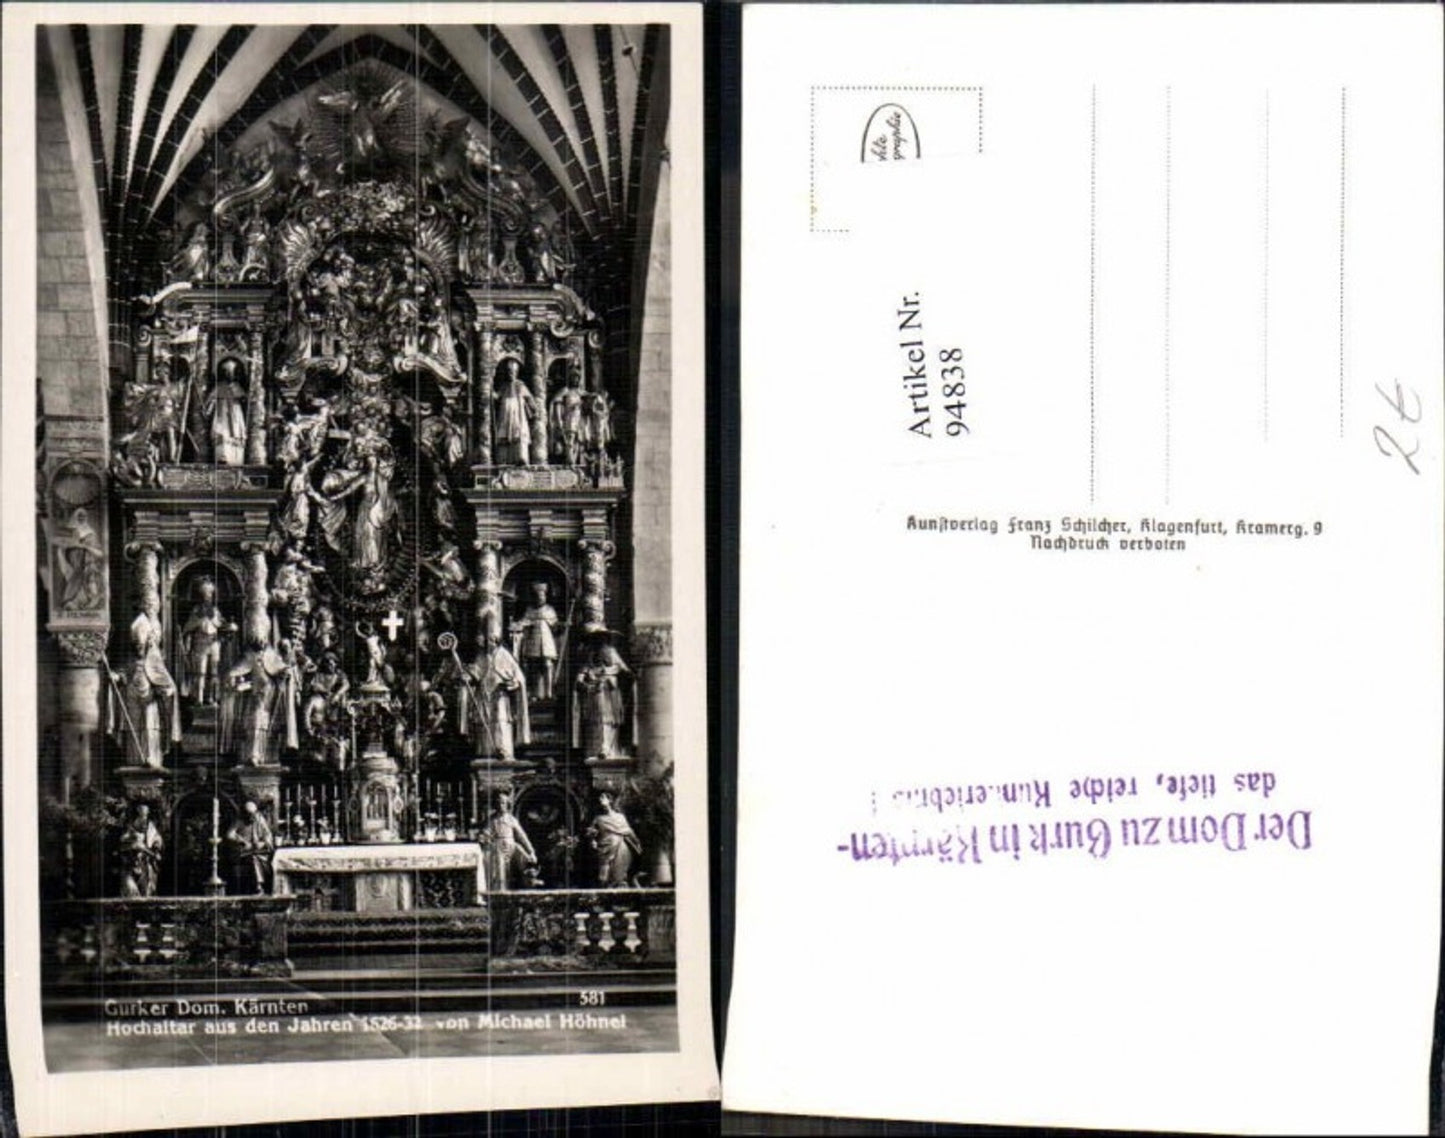 Gurker Dom. Kärnten
581
Hochaltar aus den Jahren 1626-32 von Michael Höhnel
Artikel Nr.
94838
Kunstverlag Franz Schilcher, Klagenfurt, Kramerg. 9
Nachdruck verboten
2€
Der Dom zu Gurk in Kärnten-
das tiefe, reiche